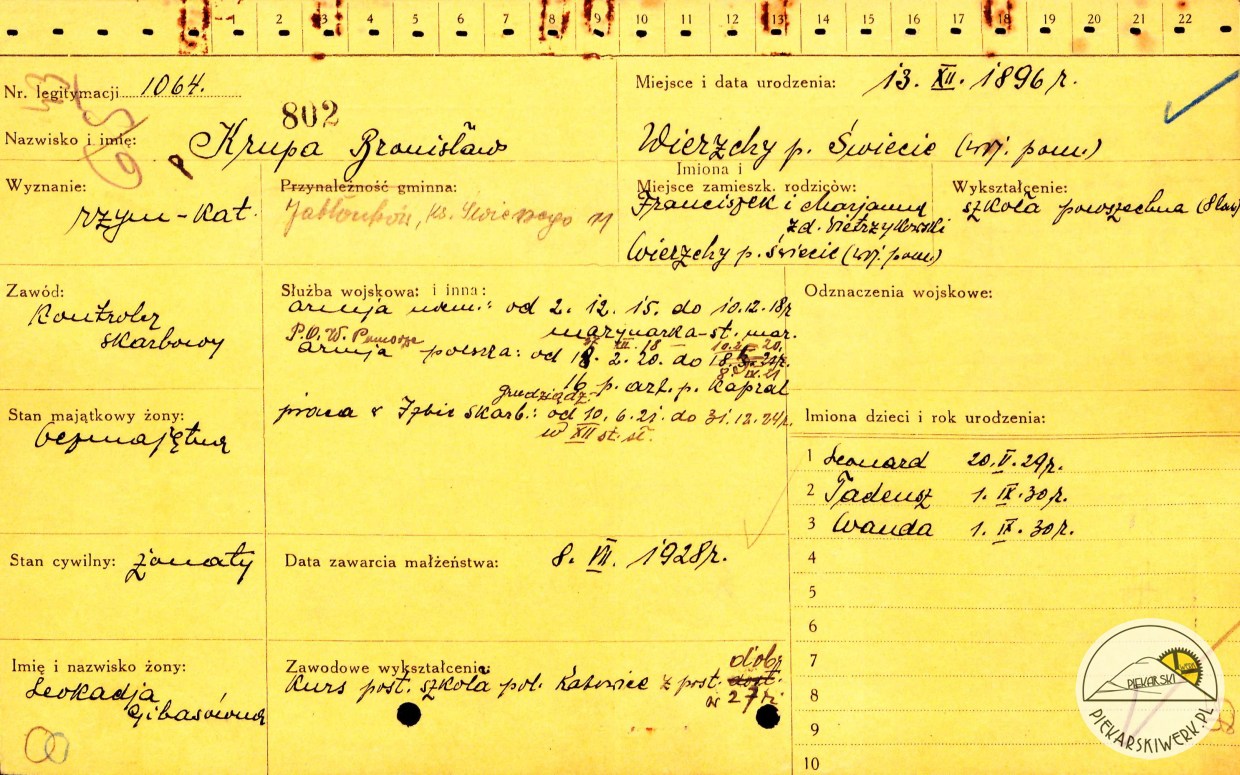 2 3 4 5 6 7 8 9 10 11 12 13 14 15 16 17 18 19 20 21 22
Nr. legitymacji 1064.
Miejsce i data urodzenia: 13. XII. 1896 r.
802
Nazwisko i imię: Krupa Bronisław
Wierzchy p. Świecie (wj. pom.)
Wyznanie:
rzym-kat.
Przynależność gminna:
Jabłonków, ks.
Imiona i
Miejsce zamieszk. rodziców:
Franciszek i Marjanna
zd. Pietrzykowski
Wierzchy p. świecie (wj. pom)
Wykształcenie:
szkoła powszechna
Zawód:
Kontroler
skarbowy
Służba wojskowa: i inna:
armja niem.: od 2. 12. 15. do 10.12.18r
marynarka-st. mar.
P.O.W. Pomorze
armja polska: od 18. 2. 20. do
16 p. art. p. Kapral
grudziądz
praca w Izbie skarb.: od 10. 6. 21. do 31. 12. 24r.
w XII st. sł.
Odznaczenia wojskowe:
Stan majątkowy żony:
bezmajętna
Imiona dzieci i rok urodzenia:
1 Leonard 20. V. 29r.
2 Tadeusz 1. IX. 30r.
3 Wanda 1. IX. 30r.
4
5
6
7
8
9
10
Stan cywilny: żonaty
Data zawarcia małżeństwa: 8. VII. 1928r.
Imię i nazwisko żony:
Leokadja
Gibasówna
Zawodowe wykształcenie:
Kurs post. szkoła pol. Katowice z post. dobr
w 27 r.
PIEKARSKI
WERK
PIEKARSKIWERK.PL